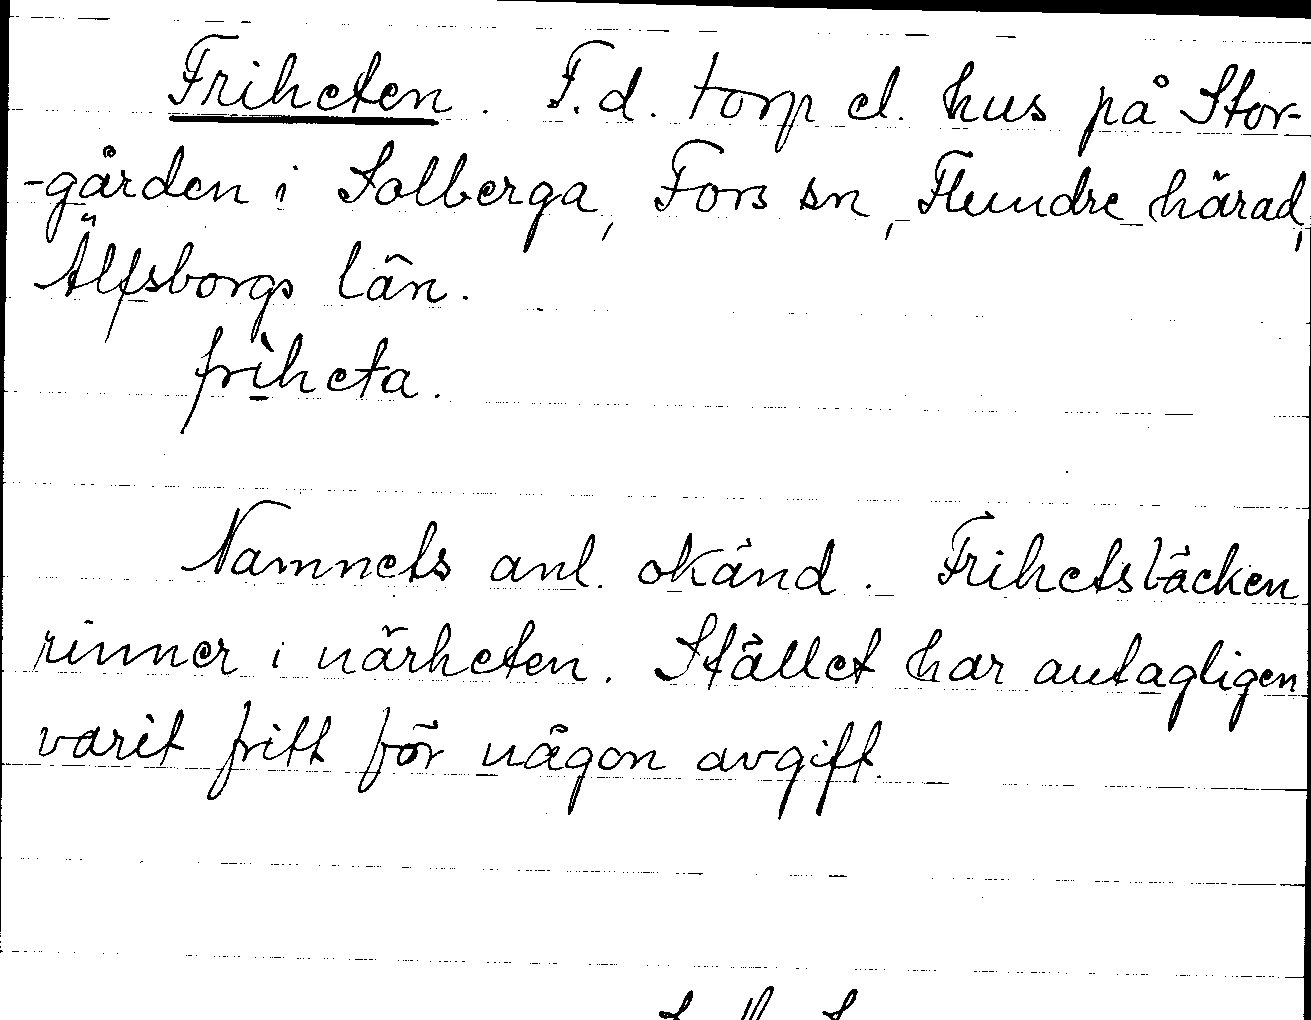 Friheten. F.d. torp el. hus på Stor-
-gården i Solberga, Fors sn, Flundre härad,
Älfsborgs län.
friheta.
Namnets anl. okänd. Frihetsbäcken
rinner i närheten. Stället har antagligen
varit fritt för någon avgift.